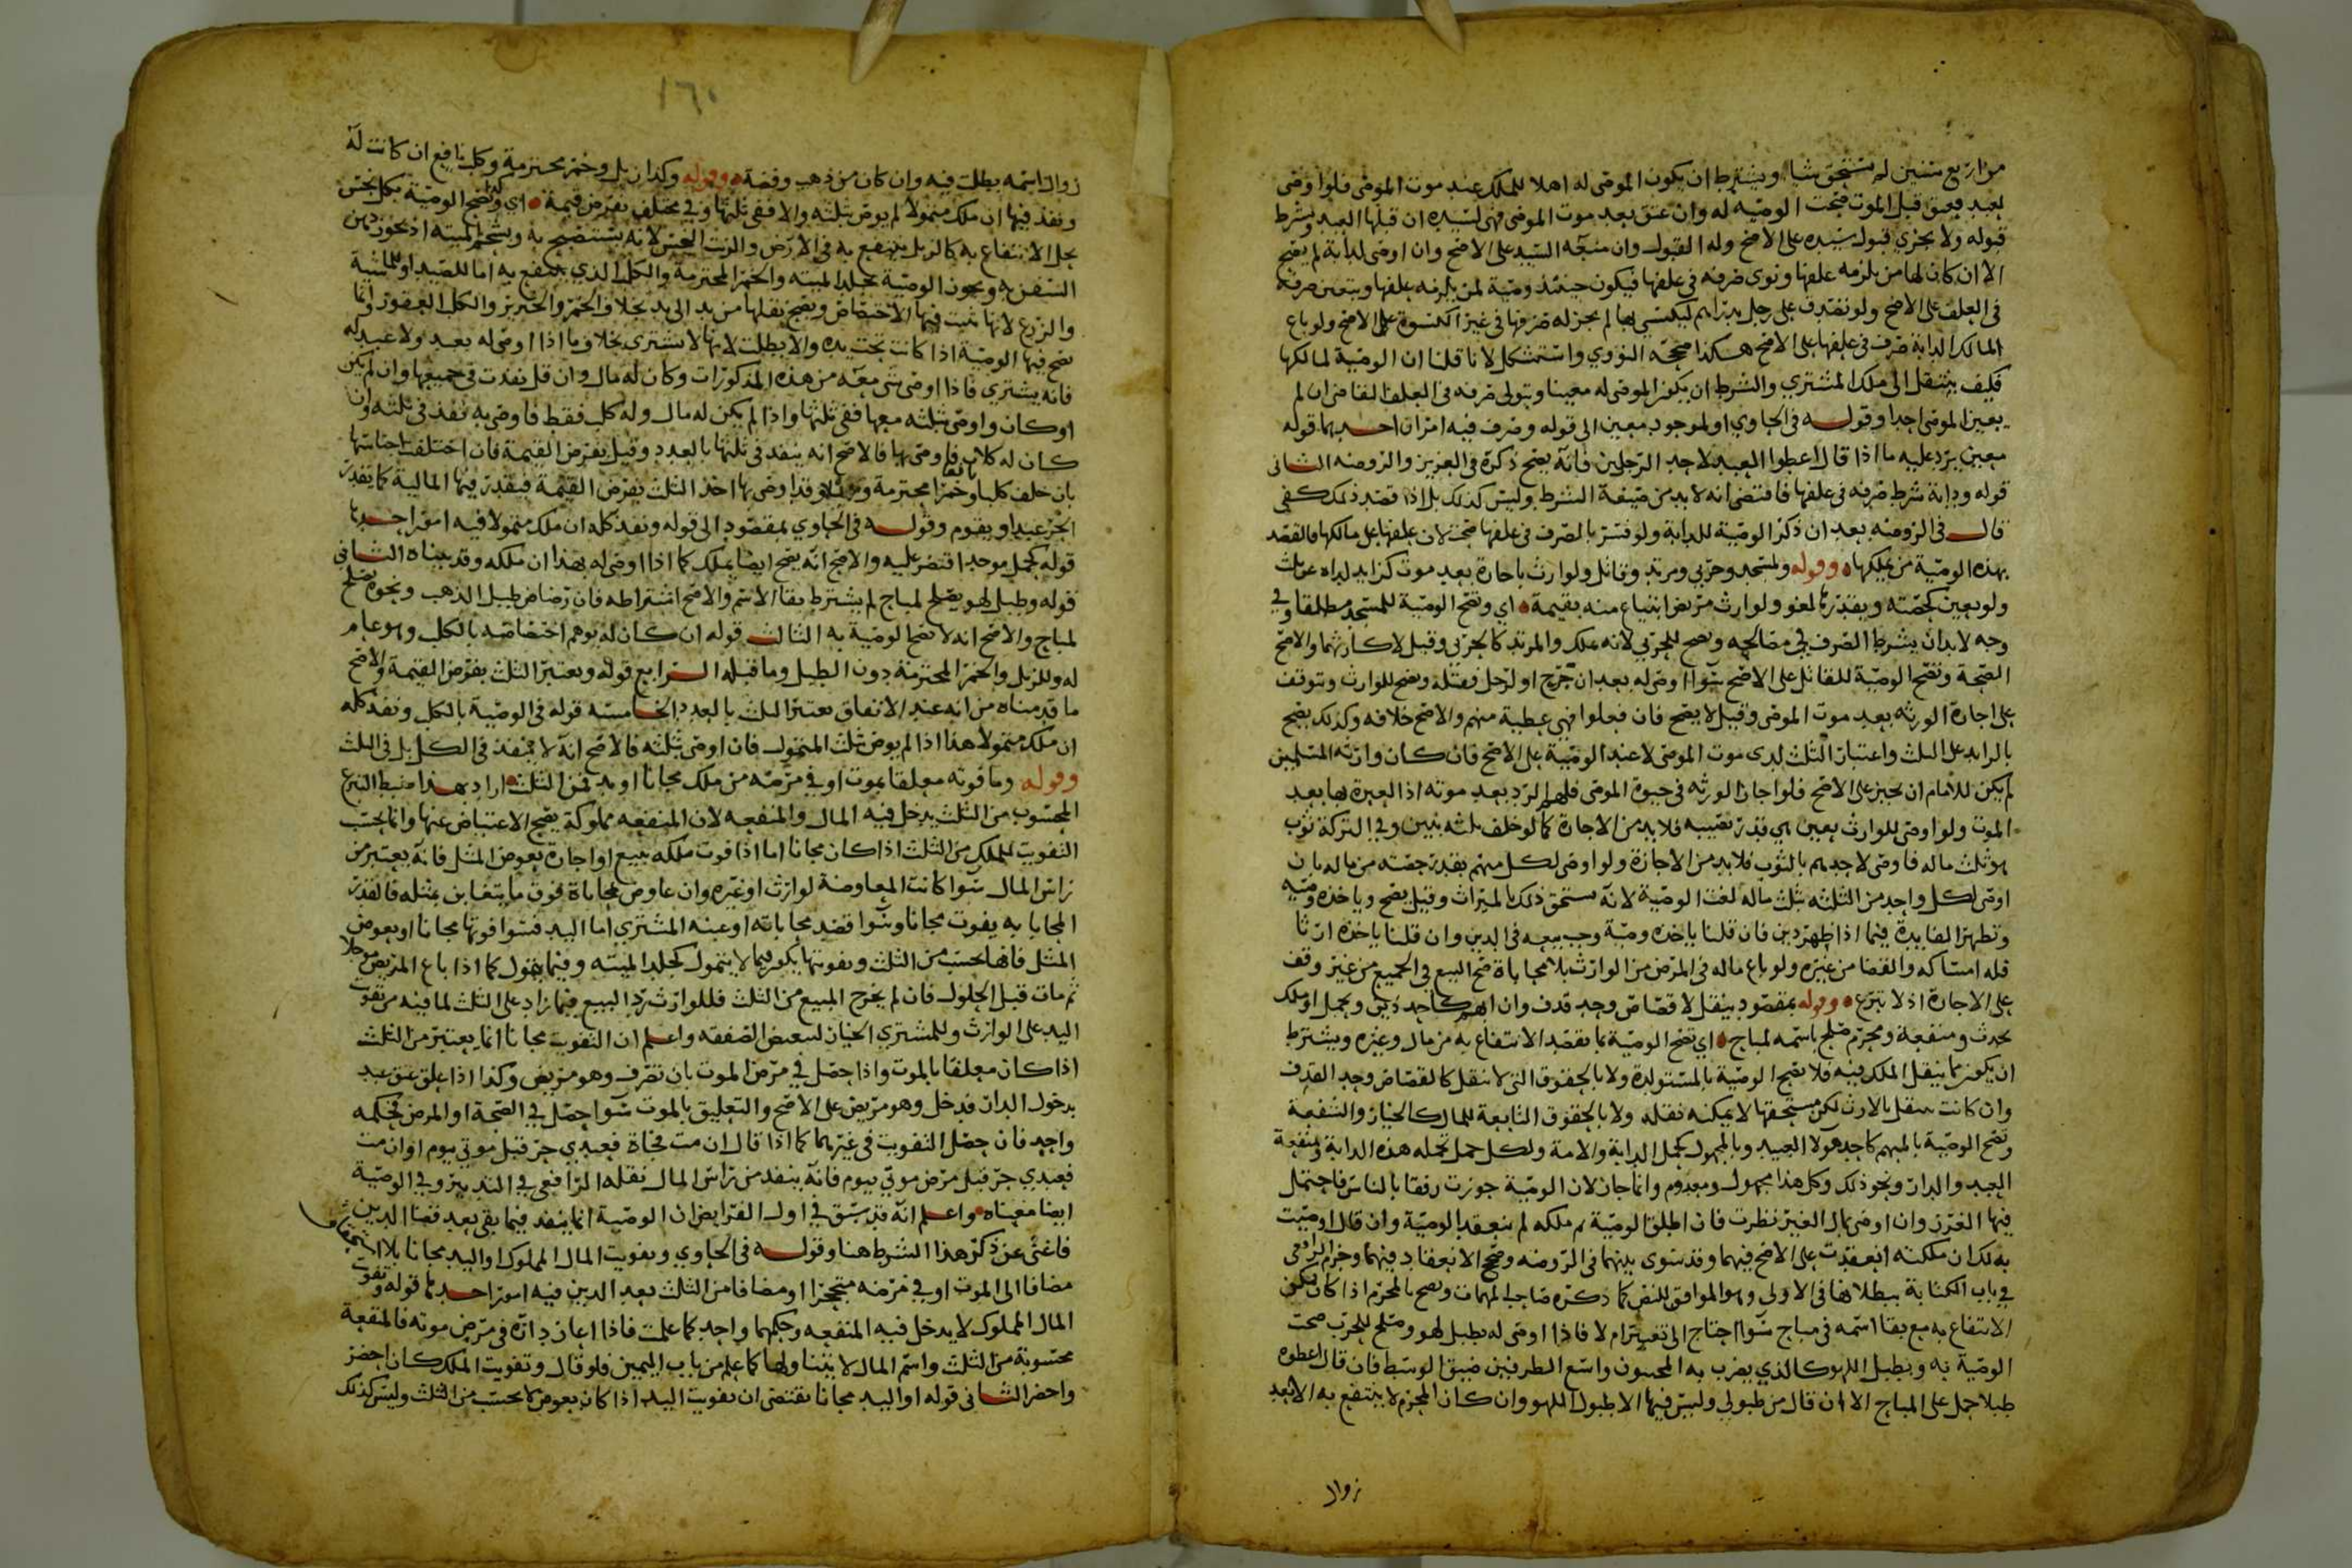 من اربع سنين لم تستحق شيا ويشترط ان يكون الموصى له اهلا للملك عند موت الموصي فلو اوصى
لعبد فعتق قبل الموت صحت الوصيه له وان عتق بعد موت الموصى فهى لسيده ان قبلها العبد ويشرط
قبوله ولا يجزي قبول سيده على الاصح وله القبول وان منعه السيد على الاصح وان اوصى لدابة لم يصح
الا ان كان لها من يلزمه علفها ونوى صرفه فى علفها فيكون حينئذ وصية لمن يلزمه علفها ويتعين صرفه
فى العلف على الاصح ولو تصدق على رجل بدراهم ليكتسي بها لم يجز له صرفها في غير الكسوة على الاصح ولو باع
المالك الدابة صرف فى علفها على الاصح هكذا صححه النووي واستشكل لانا قلنا ان الوصية لمالكها
فكيف ينتقل الى ملك المشتري والشرط ان يكون الموصى له معينا ويتولى صرفه فى العلف القاضى ان لم
يعين الموصى احدا وقوله فى الحاوي او لموجود معين الى قوله وصرف فيه امران احدهما قوله
معين يرد عليه ما اذا قال اعطوا العبد لاحد الرجلين فانه يصح ذكره فى العزيز والروضه الثانى
قوله ودابة شرط صرفه فى علفها فاقتضى انه لابد من صيغة الشرط وليس كذلك بل اذا قصد ذلك كفى
قال فى الروضه بعد ان ذكر الوصية للدابة ولو فسر بالصرف فى علفها صحت لان علفها على مالكها فالقصد
بهذه الوصية من يملكها وقوله ولمسجد وحربي ومرتد وقاتل ولوارث باجازة بعد موت كزايد لداه عن ثلث
ولو بعين كحصته وبقدر لمغو ولوارث مريض ابتياع منه بقيمة اي وتصح الوصية للمسجد مطلقا وفي
وجه لابد ان يشرط الصرف في مصالحه وتصح للحربي لانه يملك والمرتد كالحربي وقيل لا كارثهما والاصح
الصحة وتصح الوصية للقاتل على الاصح سوا اوصى له بعد ان جرح او لرجل فقتله وتصح للوارث وتتوقف
على اجازة الورثه بعد موت الموصى وقيل لا يصح فان فعلوا فهي عطية منهم والاصح خلافه وكذلك يصح
بالزايد على الثلث واعتبار الثلث لدى موت الموصى لا عند الوصية على الاصح فان كان وارثه المسلمين
لم يكن للامام ان يجيز على الاصح فلو اجاز الورثه فى حيوة الموصى فلهم الرد بعد موته اذ العبرة بها بعد
الموت ولو اوصى للوارث بعين هي قدر نصيبه فلابد من الاجازة كما لو خلف ثلثه بنين وفي التركة ثوب
هو ثلث ماله فاوصى لاحدهم بالثوب فلابد من الاجازة ولو اوصى لكل منهم بقدر حصته من ماله بان
اوصى لكل واحد من الثلثه بثلث ماله لغت الوصية لانه مستحق ذلك بالميراث وقيل يصح وياخذه وصيه
وتظهر الفايدة فيما اذا ظهر دين فان قلنا ياخذه وصية وجب بيعه فى الدين وان قلنا ياخذه ارثا
فله امساكه والقضا من غيره ولو باع ماله فى المرض من الوارث بلا محاباة صح البيع في الجميع من غير وقف
على الاجازة اذ لا تبرع وقوله بمقصود ينقل لا قصاص وحد قذف وان ابهم كاحد ذين وبحمل او ملك
يحدث ومنفعة ومحرم صلح باسمه لمباح اي تصح الوصية بما يقصد الانتفاع به من مال وغيره ويشترط
ان يكون مما ينقل الملك فيه فلا تصح الوصية بالمستولدة ولا بالحقوق التى لا تنقل كالقصاص وحد القذف
وان كانت تنتقل بالارث لكن مستحقها لا يمكنه نقله ولا بالحقوق التابعة للملك كالخيار والشفعة
وتصح الوصية بالمبهم كاحد هولا العبيد وبالمجهول كحمل الدابة والامة ولكل حمل تحمله هذه الدابة ومنفعة
العبد والدار ونحو ذلك وكل هذا مجهول ومعدوم وانما جاز لان الوصية جوزت رفقا بالناس فاحتمل
فيها الغرر وان اوصى بمال الغير نظرت فان اطلق الوصية ثم ملكه لم تنعقد الوصية وان قال اوصيت
به لك ان ملكته انعقدت على الاصح فيهما وقد سوى بينهما فى الروضه وصحح الانعقاد فيهما وجزم الرافعى
في باب الكتابة ببطلانها فى الاولى وهو الموافق للنص كما ذكره صاحب المهمات وتصح بالمحرم اذا كان يمكن
الانتفاع به مع بقا اسمه فى مباح سوا احتاج الى تغيير ام لا فاذا اوصى له بطبل لهو وصلح للحرب صحت
الوصية به وبطبل اللهو كالذي يضرب به المخنثون واسع الطرفين ضيق الوسط فان قال اعطوه
طبلا حمل على المباح الا ان قال من طبولي وليس فيها الا طبول اللهو وان كان المحرم لا ينتفع به الا بعد
زوال
١٦٠
زوال اسمه بطلت فيه وان كان من ذهب وفضة وقوله وكذا زبل وخمر محترمة وكلب نافع ان كانت له
ونفذ فيها ان ملك متمولا لم يوص بثلثه والا ففى ثلثها وفي مختلف بفرض قيمة اي وكذا تصح الوصية بكل نجس
يحل الانتفاع به كالزبل ينتفع به فى الارض والزيت النجس لانه يستصبح به وشحم الميتة اذ يجوز دهن
السفن به وتجوز الوصية بجلد الميته والخمر المحترمة والكلب الذي ينتفع به اما للصيد او للماشية
والزرع لانها ثبت فيها الاختصاص ويصح نقلها من يد الى يد بخلاف الخمر والخنزير والكلب العقور وانما
تصح فيها الوصية اذا كانت بحت يده والا بطلت لانها لا تشترى بخلاف ما اذا اوصى له بعبد ولا عبد له
فانه يشترى فاذا اوصى بشى معه من هذه المذكورات وكان له مال وان قل نفذت فى جميعها وان لم يكن
او كان واوصى بثلثه معها ففى ثلثها واذا لم يكن له مال وله كلب فقط فاوصى به نفذ فى ثلثه وان
كان له كلاب فاوصى بها فالاصح انه ينفذ فى ثلثها بالعدد وقيل بفرض القيمة فان اختلفت اجناسها
بان خلف كلبا وخمرا محترمة وزبلا وقد اوصى بها اخذ الثلث بفرض القيمة فيقدر فيها المالية كما يقدر
الحر عبدا ويقوم وقوله فى الحاوي بمقصود الى قوله ونفذ كله ان ملك متمولا فيه امور احدها
قوله كحمل موجد اقتصر عليه والاصح انه يصح ايضا بملك كما اذا اوصى له بهذا ان ملكه وقد بيناه الثانى
قوله وطبل لهو يصلح لمباح لم يشترط بقا الاسم والاصح اشتراطه فان رضاض طبل الذهب ونحوه يصلح
لمباح والاصح انه لا تصح الوصية به الثالث قوله ان كان له يوهم اختصاصه بالكلب وهو عام
له وللزبل والخمر المحترمة دون الطبل وما قبله الرابع قوله ويعتبر الثلث بفرض القيمة والاصح
ما قدمناه من انه عند الاتفاق يعتبر الثلث بالعدد الخامسه قوله فى الوصية بالكلب ونفذ كله
ان ملك متمولا هذا اذا لم يوص بثلث المتمول فان اوصى بثلثه فالاصح انه لا ينفذ فى الكل بل فى الثلث
وقوله وما فوته معلقا بموت او في مرضه من ملك مجانا او يد فمن الثلث اراد بهذا ضبط التبرع
المحسوب من الثلث يدخل فيه المال والمنفعه لان المنفعه مملوكة يصح الاعتياض عنها وانما يحتسب
التفويت للملك من الثلث اذا كان مجانا اما اذا فوت ملكه ببيع او اجارة بعوض المثل فانه يعتبر من
راس المال سوا كانت المعاوضة لوارث او غيره وان عاوض بمحاباة فوق ما يتغابن بمثله فالقدر
المحابا به يفوت مجانا وسوا قصد محاباته او غبنه المشتري اما اليد فسوا فوتها مجانا او بعوض
المثل فانها تحسب من الثلث وتفويتها يكون فيما لا يتمول كجلد الميته وفيما يتمول كما اذا باع المريض موجلا
ثم مات قبل الحلول فان لم يخرج المبيع من الثلث فللوارث رد البيع فيما زاد على الثلث لما فيه من تفويت
اليد على الوارث وللمشتري الخيار لتبعيض الصفقه واعلم ان التفويت مجانا انما يعتبر من الثلث
اذا كان معلقا بالموت واذا حصل في مرض الموت بان تصرف وهو مريض وكذا اذا علق عتق عبد
بدخول الدار فدخل وهو مريض على الاصح والتعليق بالموت سوا حصل في الصحة او المرض فحكمه
واحد فان حصل التفويت فى غيرهما كما اذا قال ان مت فجاة فعبدي حر قبل موتي بيوم او ان مت
فعبدي حر قبل مرض موتي بيوم فانه ينفذ من راس المال نقله الرافعى في التدبير وفي الوصية
ايضا معناه واعلم انه قد سبق في اول الفرايض ان الوصية انما ينفذ فيما بقى بعد قضا الدين
فاغنى عن ذكر هذا الشرط هنا وقوله فى الحاوي وتفويت المال المملوك او اليد مجانا بلا استحقاق
مضافا الى الموت او في مرضه متنجزا او مضافا من الثلث بعد الدين فيه امور احدها قوله وتفويت
المال المملوك لا يدخل فيه المنفعه وحكمهما واحد كما علمت فاذا اعار داره فى مرض موته فالمنفعة
محسوبة من الثلث واسم المال لا يتناولها كما علم من باب اليمين فلو قال وتفويت الملك كان اخصر
واحضر الثانى قوله او اليد مجانا يقتضى ان تفويت اليد اذا كان بعوض لا يحسب من الثلث وليس كذلك